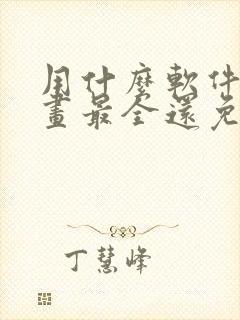 用什麼軟件
畫最全還免
丁慧峰